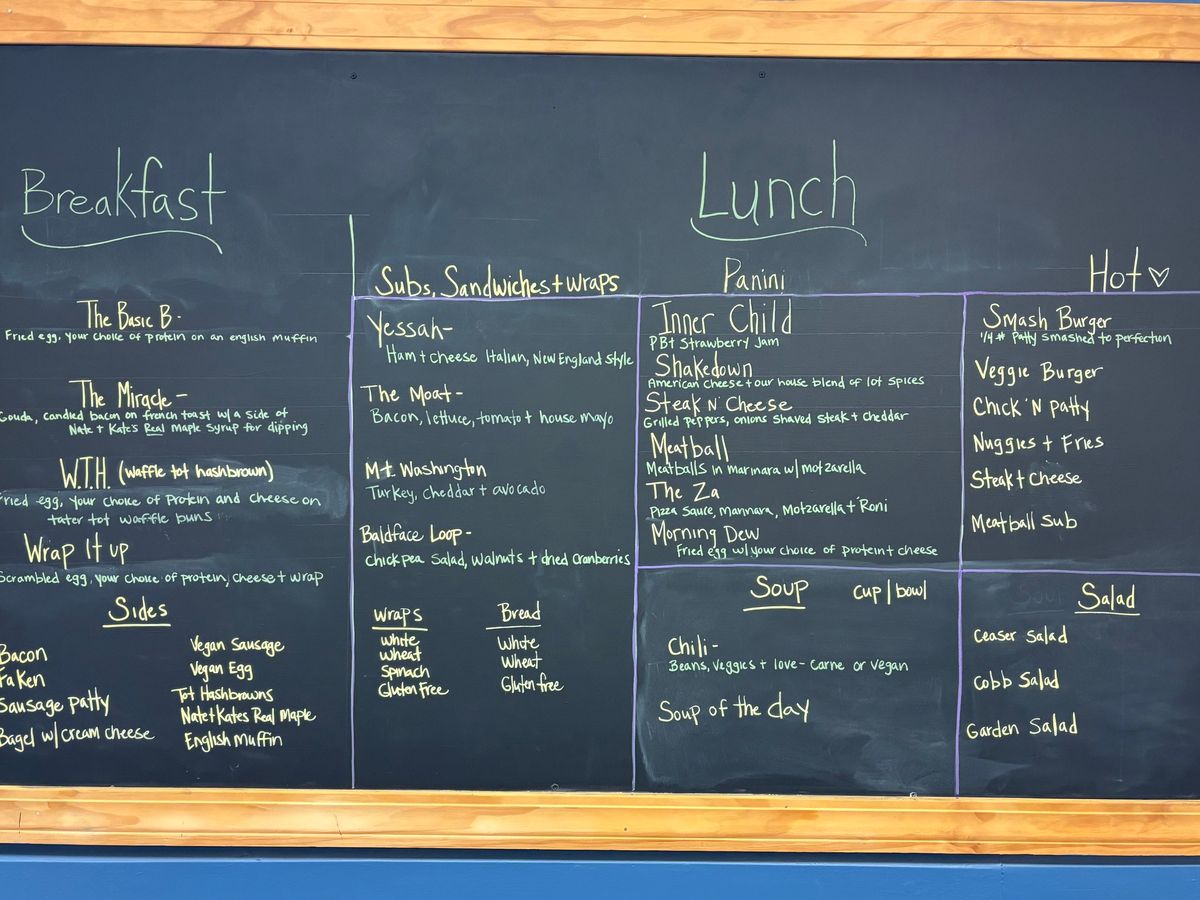 Breakfast
The Basic B-
Fried egg, your choice of protein on an english muffin
The Miracle-
Gouda, candied bacon on french toast w/a side of
Nate + Kate's Real Maple Syrup for dipping
W.T.H. (waffle tot hashbrown)
Fried egg, your choice of protein and cheese on
tater tot waffle buns
Wrap It up
Scrambled egg, your choice of protein, cheese + wrap
Sides
Bacon
Faken
Sausage patty
Bagel w/ cream cheese
Vegan Sausage
Vegan Egg
Tot Hashbrowns
Nate + Kates Real Maple
English Muffin
Lunch
Subs, Sandwiches + wraps
Yessah-
Ham + cheese Italian, New England style
The Moat-
Bacon, lettuce, tomato + house mayo
Mt. Washington
Turkey, cheddar + avocado
Baldface Loop-
Chickpea Salad, walnuts + dried cranberries
Wraps
White
Wheat
Spinach
Gluten Free
Bread
White
Wheat
Gluten free
Panini
Inner Child
PB + Strawberry Jam
Shakedown
American cheese + our house blend of lot spices
Steak N' Cheese
Grilled peppers, onions shaved steak + cheddar
Meatball
Meatballs in marinara w/ motzarella
The Za
Pizza sauce, marinara, Motzarella + Roni
Morning Dew
Fried egg w/ your choice of protein + cheese
Soup cup | bowl
Chili-
Beans, veggies + love - carne or vegan
Soup of the day
Hot ♡
Smash Burger
1/4 # Patty smashed to perfection
Veggie Burger
Chick 'N patty
Nuggies + Fries
Steak + Cheese
Meatball Sub
Salad
Ceaser Salad
Cobb Salad
Garden Salad